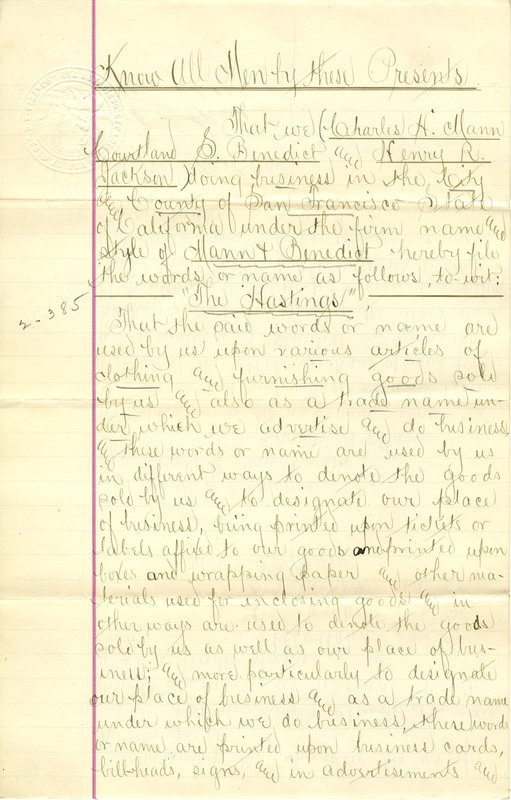 Know All Men by these Presents
That we (Charles H. Mann
Courtland S. Benedict and Henry R.
Jackson) doing business in the City
and County of San Francisco State
of California under the firm name and
style of Mann & Benedict hereby file
the words, or name as follows, to-wit:
"The Hastings",
2-385
That the said words or name are
used by us upon various articles of
clothing and furnishing goods sold
by us and also as a trade name un-
der which we advertise and do business,
and these words or name are used by us
in different ways to denote the goods
sold by us and to designate our place
of business, being printed upon tickets or
labels affixed to our goods and printed upon
boxes and wrapping paper and other ma-
terials used for inclosing goods and in
other ways are used to denote the goods
sold by us as well as our place of bus-
iness; and more particularly to designate
our place of business and as a trade name
under which we do business, these words
or name are printed upon business cards,
bill-heads, signs, and in advertisements and